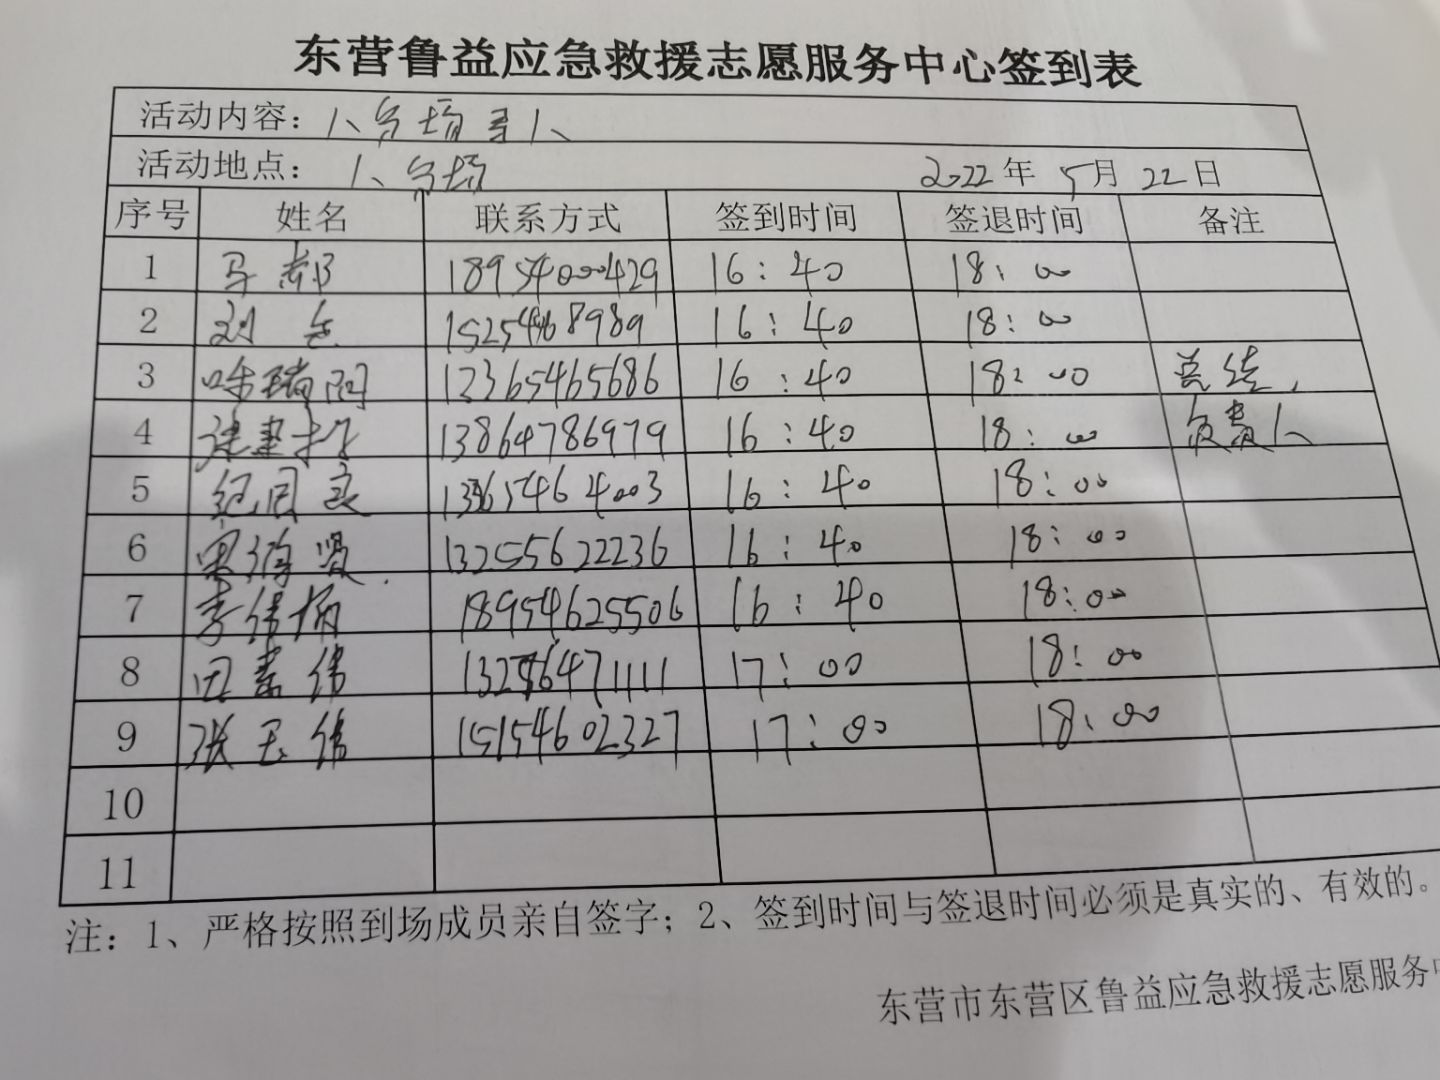 东营鲁益应急救援志愿服务中心签到表
活动内容：人参场寻人
活动地点：人参场 2022年5月22日
序号 姓名 联系方式 签到时间 签退时间 备注
1 18954000429 16:40 18:00
2 刘 1525468989 16:40 18:00
3 瑞 12365465686 16:40 18:00 总结，
4 13864786979 16:40 18:00 负责人
5 纪同良 4003 16:40 18:00
6 贤 13255622236 16:40 18:00
7 李伟 18954625506 16:40 18:00
8 田素伟 71111 17:00 18:00
9 张玉伟 15154602327 17:00 18:00
10
11
注：1、严格按照到场成员亲自签字；2、签到时间与签退时间必须是真实的、有效的。
东营市东营区鲁益应急救援志愿服务中